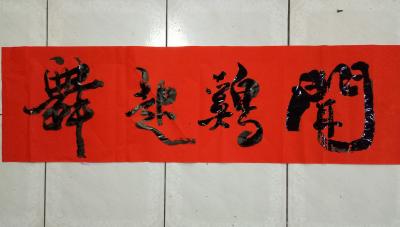 聞鷄起舞